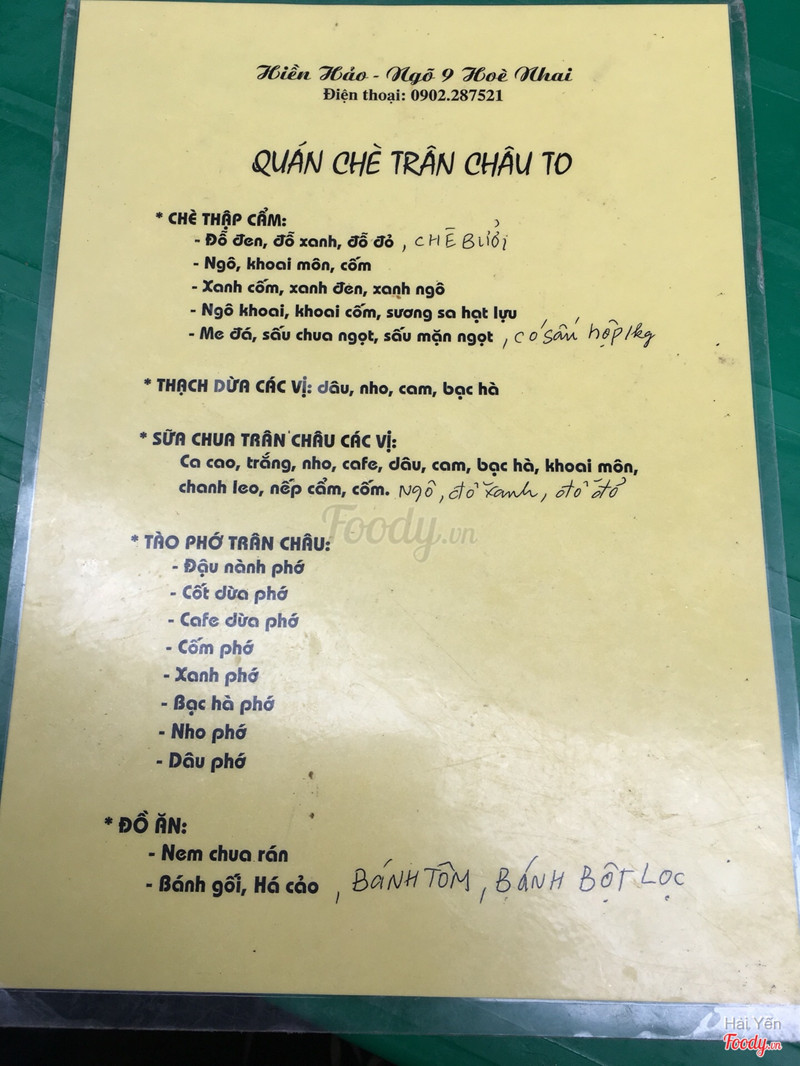 Hiền Hảo - Ngõ 9 Hoè Nhai
Điện thoại: 0902.287521
QUÁN CHÈ TRÂN CHÂU TO
* CHÈ THẬP CẨM:
- Đỗ đen, đỗ xanh, đỗ đỏ, CHÈ BƯỞI
- Ngô, khoai môn, cốm
- Xanh cốm, xanh đen, xanh ngô
- Ngô khoai, khoai cốm, sương sa hạt lựu
- Me đá, sấu chua ngọt, sấu mặn ngọt, có sấu hộp 1kg
* THẠCH DỪA CÁC VỊ: dâu, nho, cam, bạc hà
* SỮA CHUA TRÂN CHÂU CÁC VỊ:
Ca cao, trắng, nho, cafe, dâu, cam, bạc hà, khoai môn,
chanh leo, nếp cẩm, cốm. Ngô, đỗ xanh, đỗ đỏ
Foody.vn
* TÀO PHỚ TRÂN CHÂU:
- Đậu nành phớ
- Cốt dừa phớ
- Cafe dừa phớ
- Cốm phớ
- Xanh phớ
- Bạc hà phớ
- Nho phớ
- Dâu phớ
* ĐỒ ĂN:
- Nem chua rán
- Bánh gối, Há cảo, BÁNH TÔM, BÁNH BỘT LỌC
Hải Yến
Foody.vn